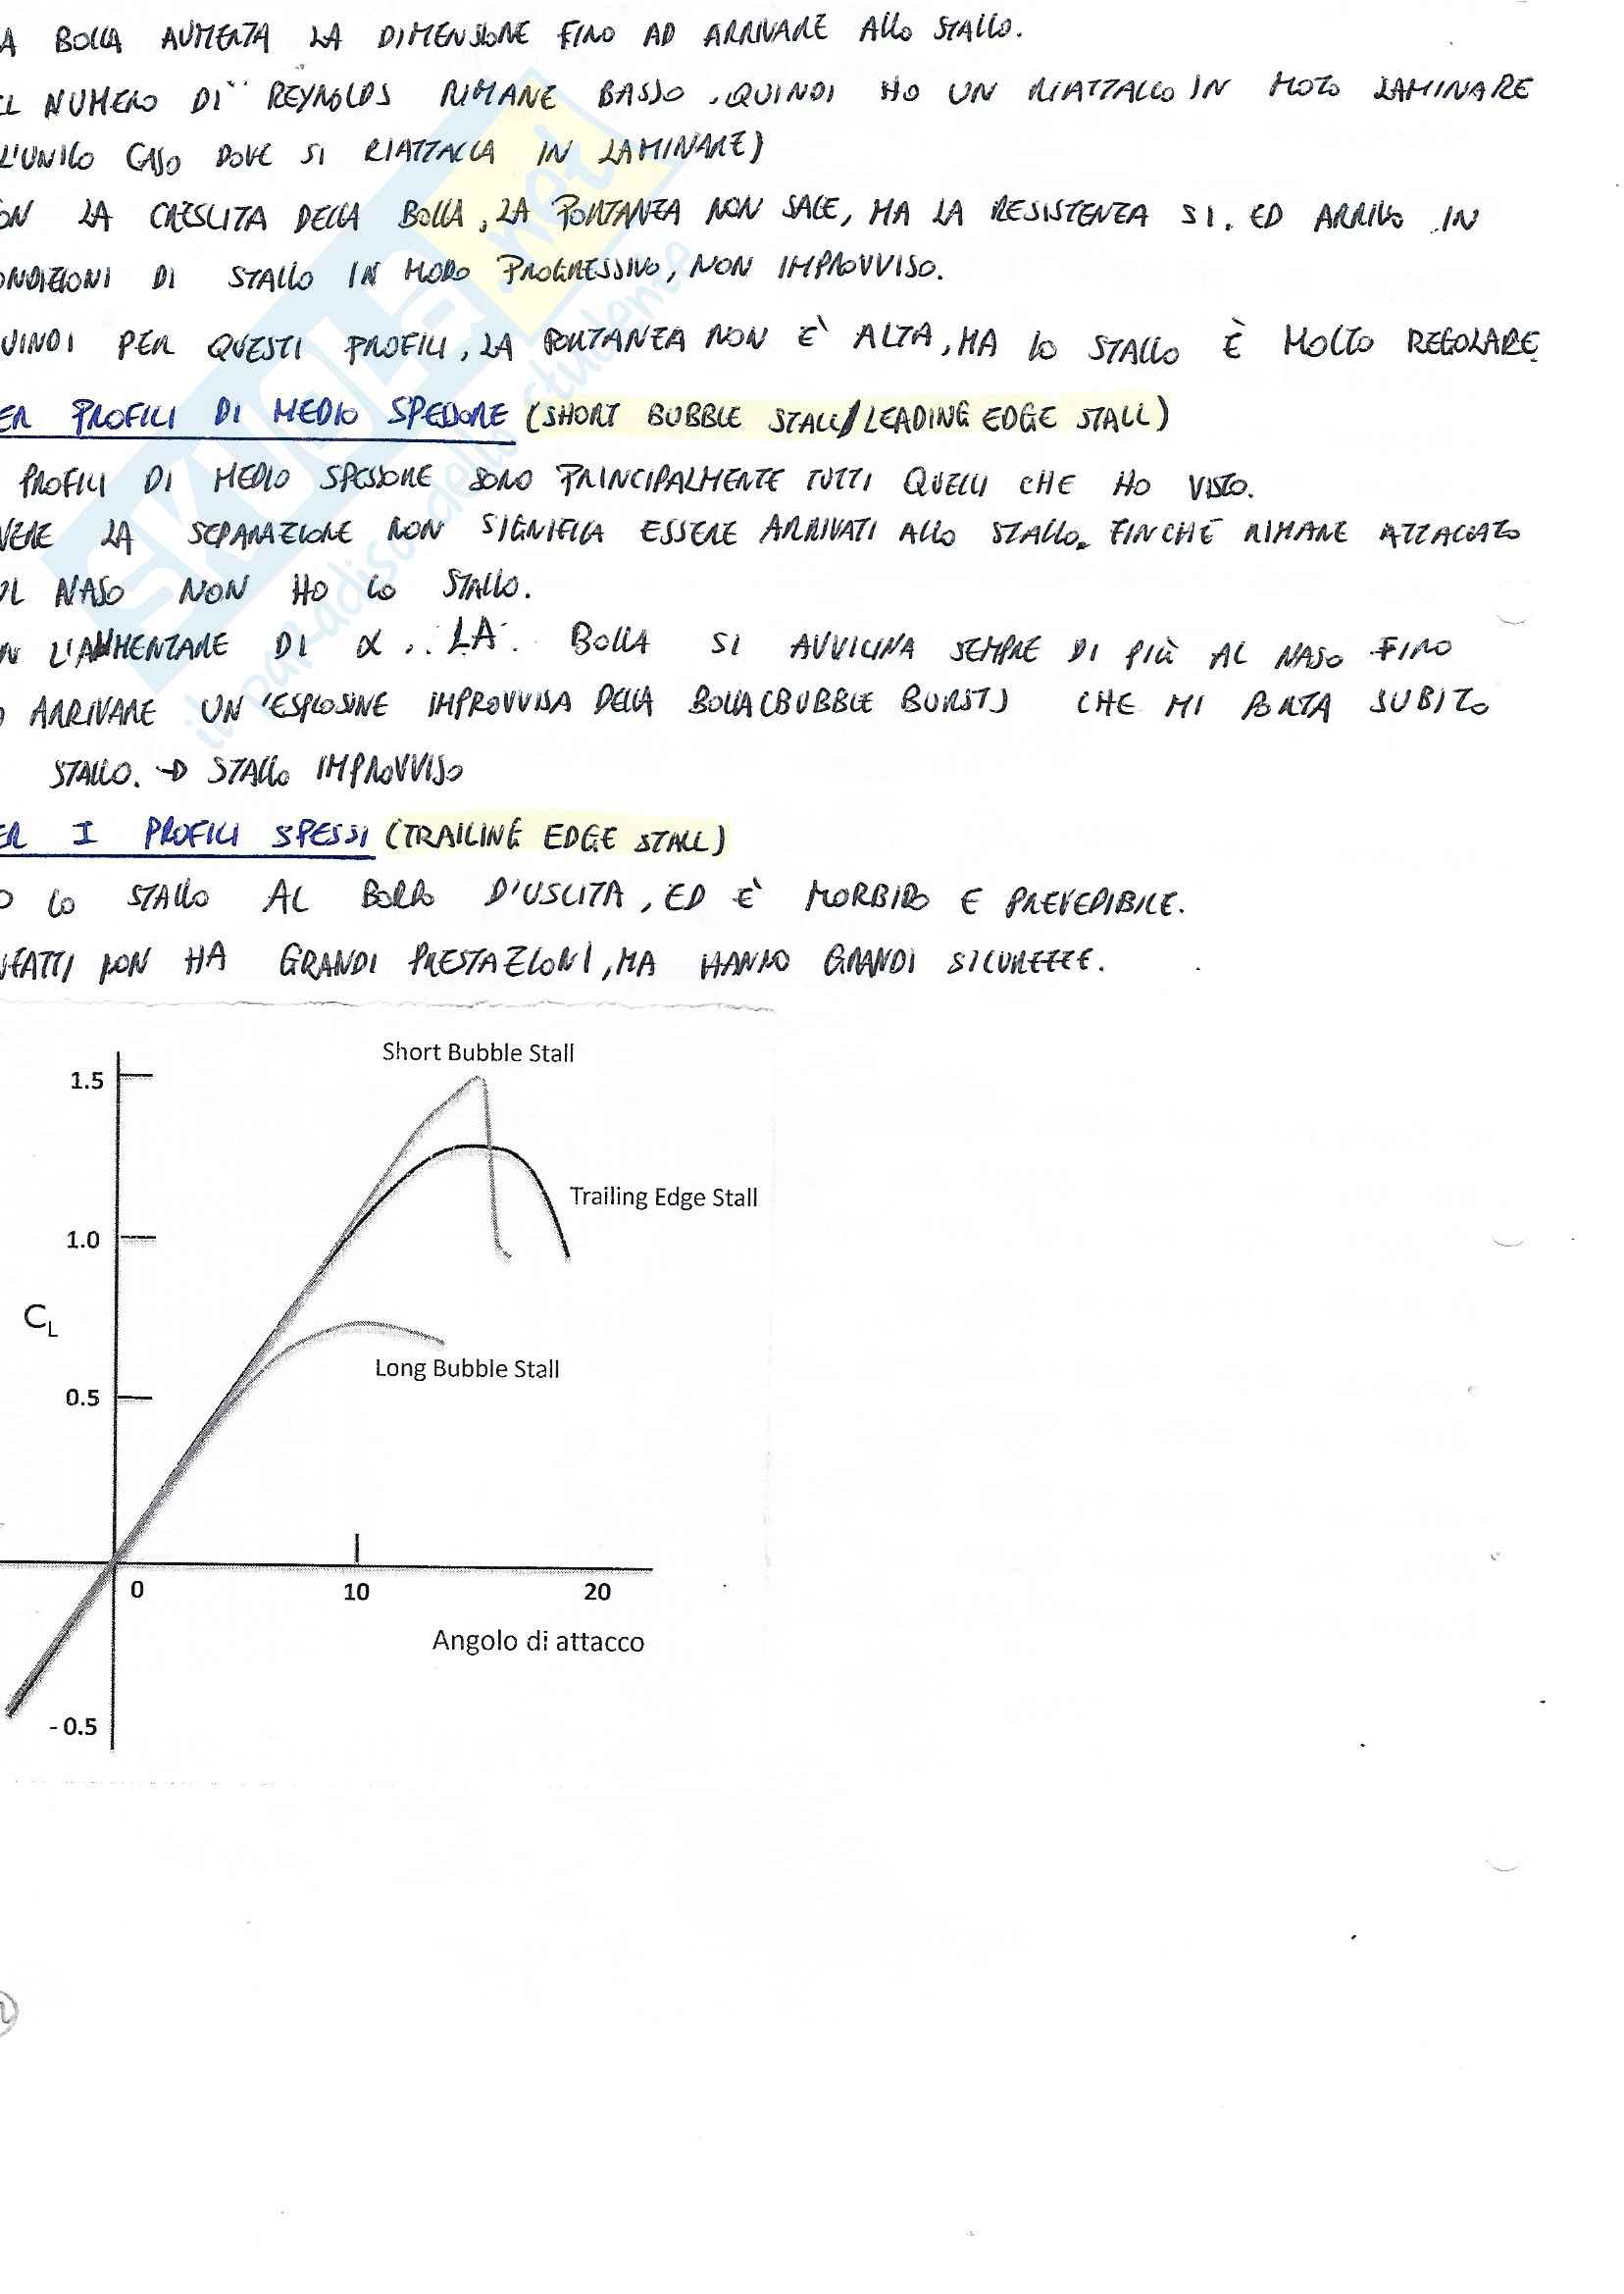 A BOLLA AUMENTA LA DIMENSIONE FINO AD ARRIVARE ALLO STALLO.
IL NUMERO DI REYNOLDS RIMANE BASSO, QUINDI HO UN RIATTACCO IN MOTO LAMINARE
L'UNICO CASO DOVE SI RIATTACCA IN LAMINARE)
ON LA CRESCITA DELLA BOLLA, LA PORTANZA NON SALE, MA LA RESISTENZA SI. ED ARRIVO IN
ONDIZIONI DI STALLO IN MODO PROGRESSIVO, NON IMPROVVISO.
UINDI PER QUESTI PROFILI, LA PORTANZA NON E' ALTA, MA LO STALLO È MOLTO REGOLARE
ER PROFILI DI MEDIO SPESSORE (SHORT BUBBLE STALL/LEADING EDGE STALL)
PROFILI DI MEDIO SPESSORE SONO PRINCIPALMENTE TUTTI QUELLI CHE HO VISTO.
VERE LA SEPARAZIONE NON SIGNIFICA ESSERE ARRIVATI ALLO STALLO. FINCHÈ RIMANE ATTACCATO
UL NASO NON HO LO STALLO.
N L'AUMENTARE DI α LA BOLLA SI AVVICINA SEMPRE DI PIÙ AL NASO FINO
D ARRIVARE UN'ESPLOSINE IMPROVVISA DELLA BOLLA (BUBBLE BURST) CHE MI PORTA SUBITO
STALLO. → STALLO IMPROVVISO
ER I PROFILI SPESSI (TRAILING EDGE STALL)
O LO STALLO AL BORDO D'USCITA, ED E' MORBIDO E PREVEDIBILE.
NFATTI NON HA GRANDI PRESTAZIONI, MA HANNO GRANDI SICUREZZE.
Short Bubble Stall
1.5
Trailing Edge Stall
1.0
CL
Long Bubble Stall
0.5
0 10 20
Angolo di attacco
-0.5
SKUOLA.net
il paradiso dello studente